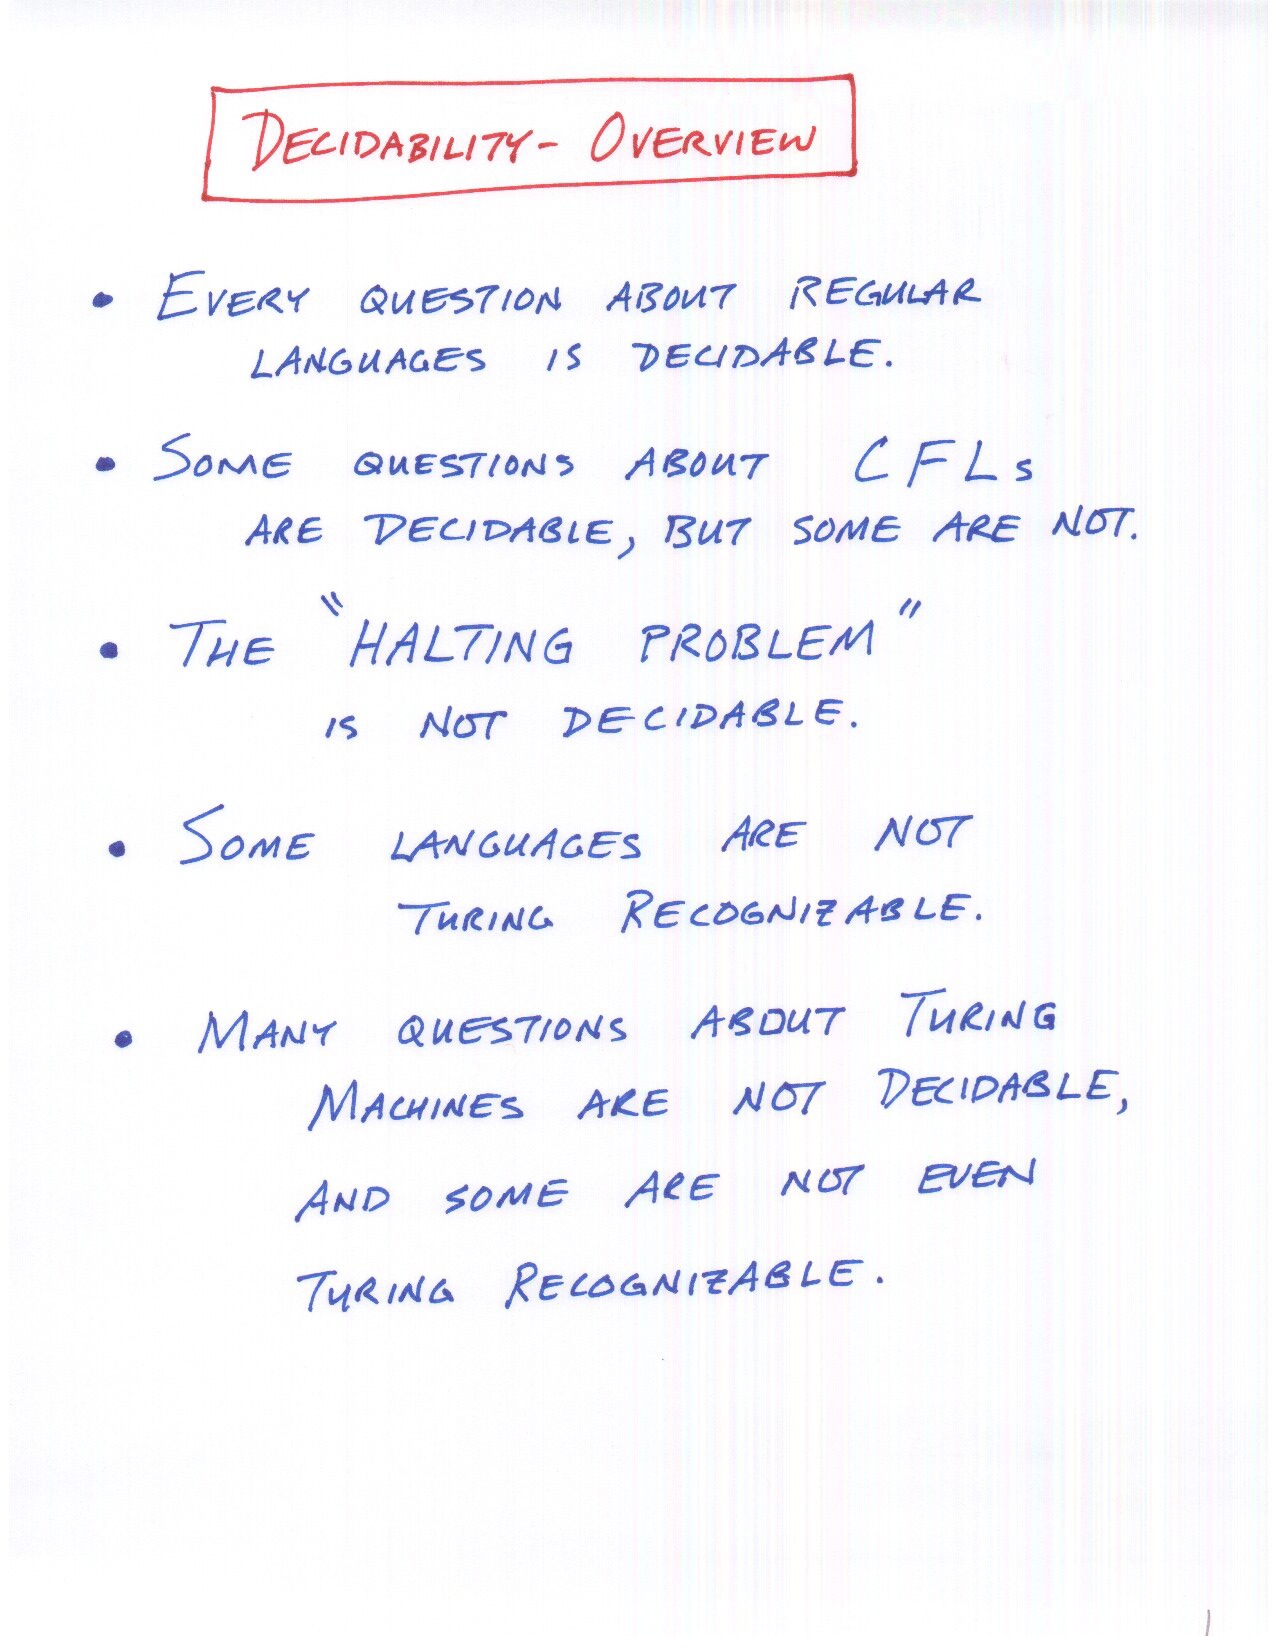 DECIDABILITY - OVERVIEW
• EVERY QUESTION ABOUT REGULAR
LANGUAGES IS DECIDABLE.
• SOME QUESTIONS ABOUT CFLs
ARE DECIDABLE, BUT SOME ARE NOT.
• THE "HALTING PROBLEM"
IS NOT DECIDABLE.
• SOME LANGUAGES ARE NOT
TURING RECOGNIZABLE.
• MANY QUESTIONS ABOUT TURING
MACHINES ARE NOT DECIDABLE,
AND SOME ARE NOT EVEN
TURING RECOGNIZABLE.
1